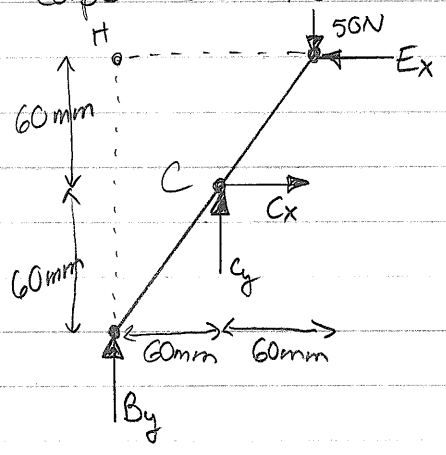 H
50N
Ex
60mm
C
Cx
60mm
Cy
60mm
60mm
By